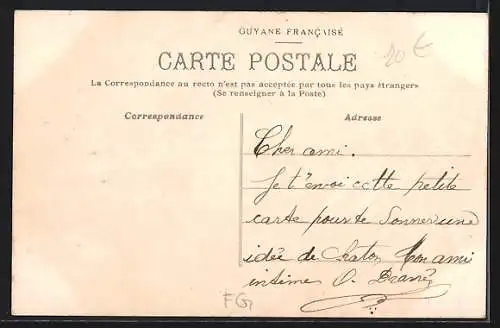 GUYANE FRANÇAISE
CARTE POSTALE
20 €
La Correspondance au recto n'est pas acceptée par tous les pays étrangers
(Se renseigner à la Poste)
Correspondance
Adresse
Cher ami.
Je t'envoi cette petite
carte pour te donner une
idée de Ton ami
intime O.
FG